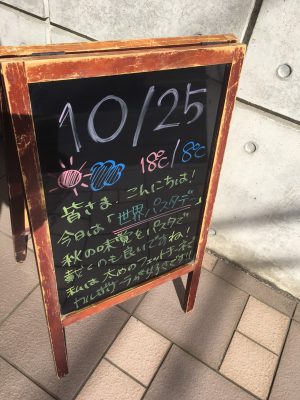 10/25
18℃/8℃
皆さま、こんにちは!
今日は「世界パスタデー」
秋の味覚をパスタで
頂くのも良いですね!
私は太めのフェットチーネで
カルボナーラが好きです!!